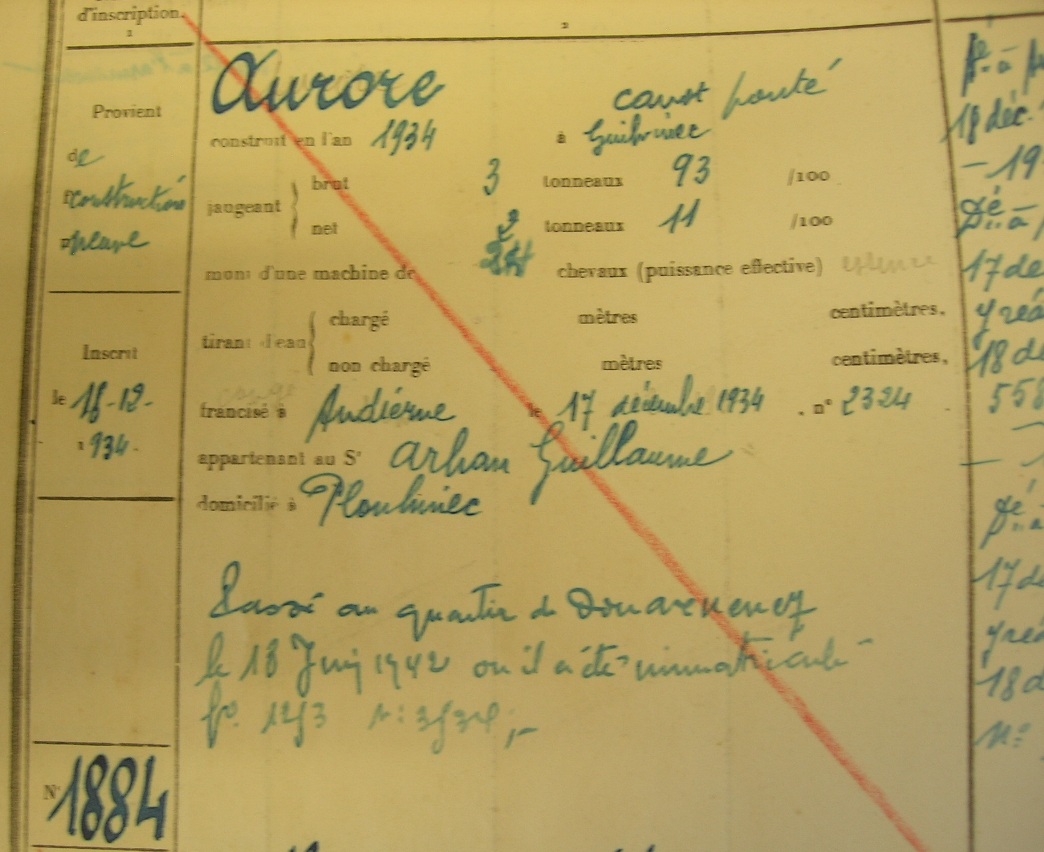 d'inscription.
2
2
Provient
de
construction
neuve
Aurore
canot ponté
construit en l'an 1934 à Guilvinec
jaugeant brut 3 tonneaux 93 /100
net 2 tonneaux 11 /100
muni d'une machine de chevaux (puissance effective) essence
tirant d'eau chargé mètres centimètres,
non chargé mètres centimètres,
Inscrit
le 18-12-
1934.
francisé à Audierne le 17 décembre 1934 . n° 2324
appartenant au Sr Arhan Guillaume
domicilié à Plouhinec
Passé au quartier de Douarnenez
le 18 Juin 1942 où il a été immatriculé
fo.
N° 1884
18 déc.
- 19
17 de
18 d
558
17 d
18 d
n°